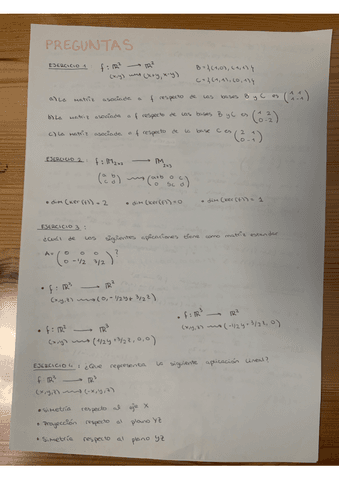 PREGUNTAS
EJERCICIO 1: f: ℝ² → ℝ² B={(1,0), (1,1)}
(x,y) ⟿ (x+y, x-y) C={(1,1), (0,1)}
a) La matriz asociada a f respecto de las bases B y C es
b) La matriz asociada a f respecto de las bases B y C es
c) La matriz asociada a f respecto de la base C es
EJERCICIO 2: f: M2x2 → M2x3
(a b) ⟿ (a+b 0 c)
(c d) (0 3c 0)
• dim(Ker(f))=2 • dim(Ker(f))=0 • dim(Ker(f))=1
EJERCICIO 3:
¿Cuál de las siguientes aplicaciones tiene como matriz asociada
A = (0 0 0) ?
(0 -1/2 3/2)
• f: ℝ³ → ℝ²
(x,y,z) ⟿ (0, -1/2y + 3/2z)
• f: ℝ³ → ℝ²
(x,y,z) ⟿ (-1/2y + 3/2z, 0)
• f: ℝ² → ℝ³
(x,y) ⟿
EJERCICIO 4: ¿Qué representa la siguiente aplicación lineal?
f: ℝ³ → ℝ³
(x,y,z) ⟿ (-x,y,z)
• Simetría respecto al eje X
• Proyección respecto al plano YZ
• Simetría respecto al plano YZ